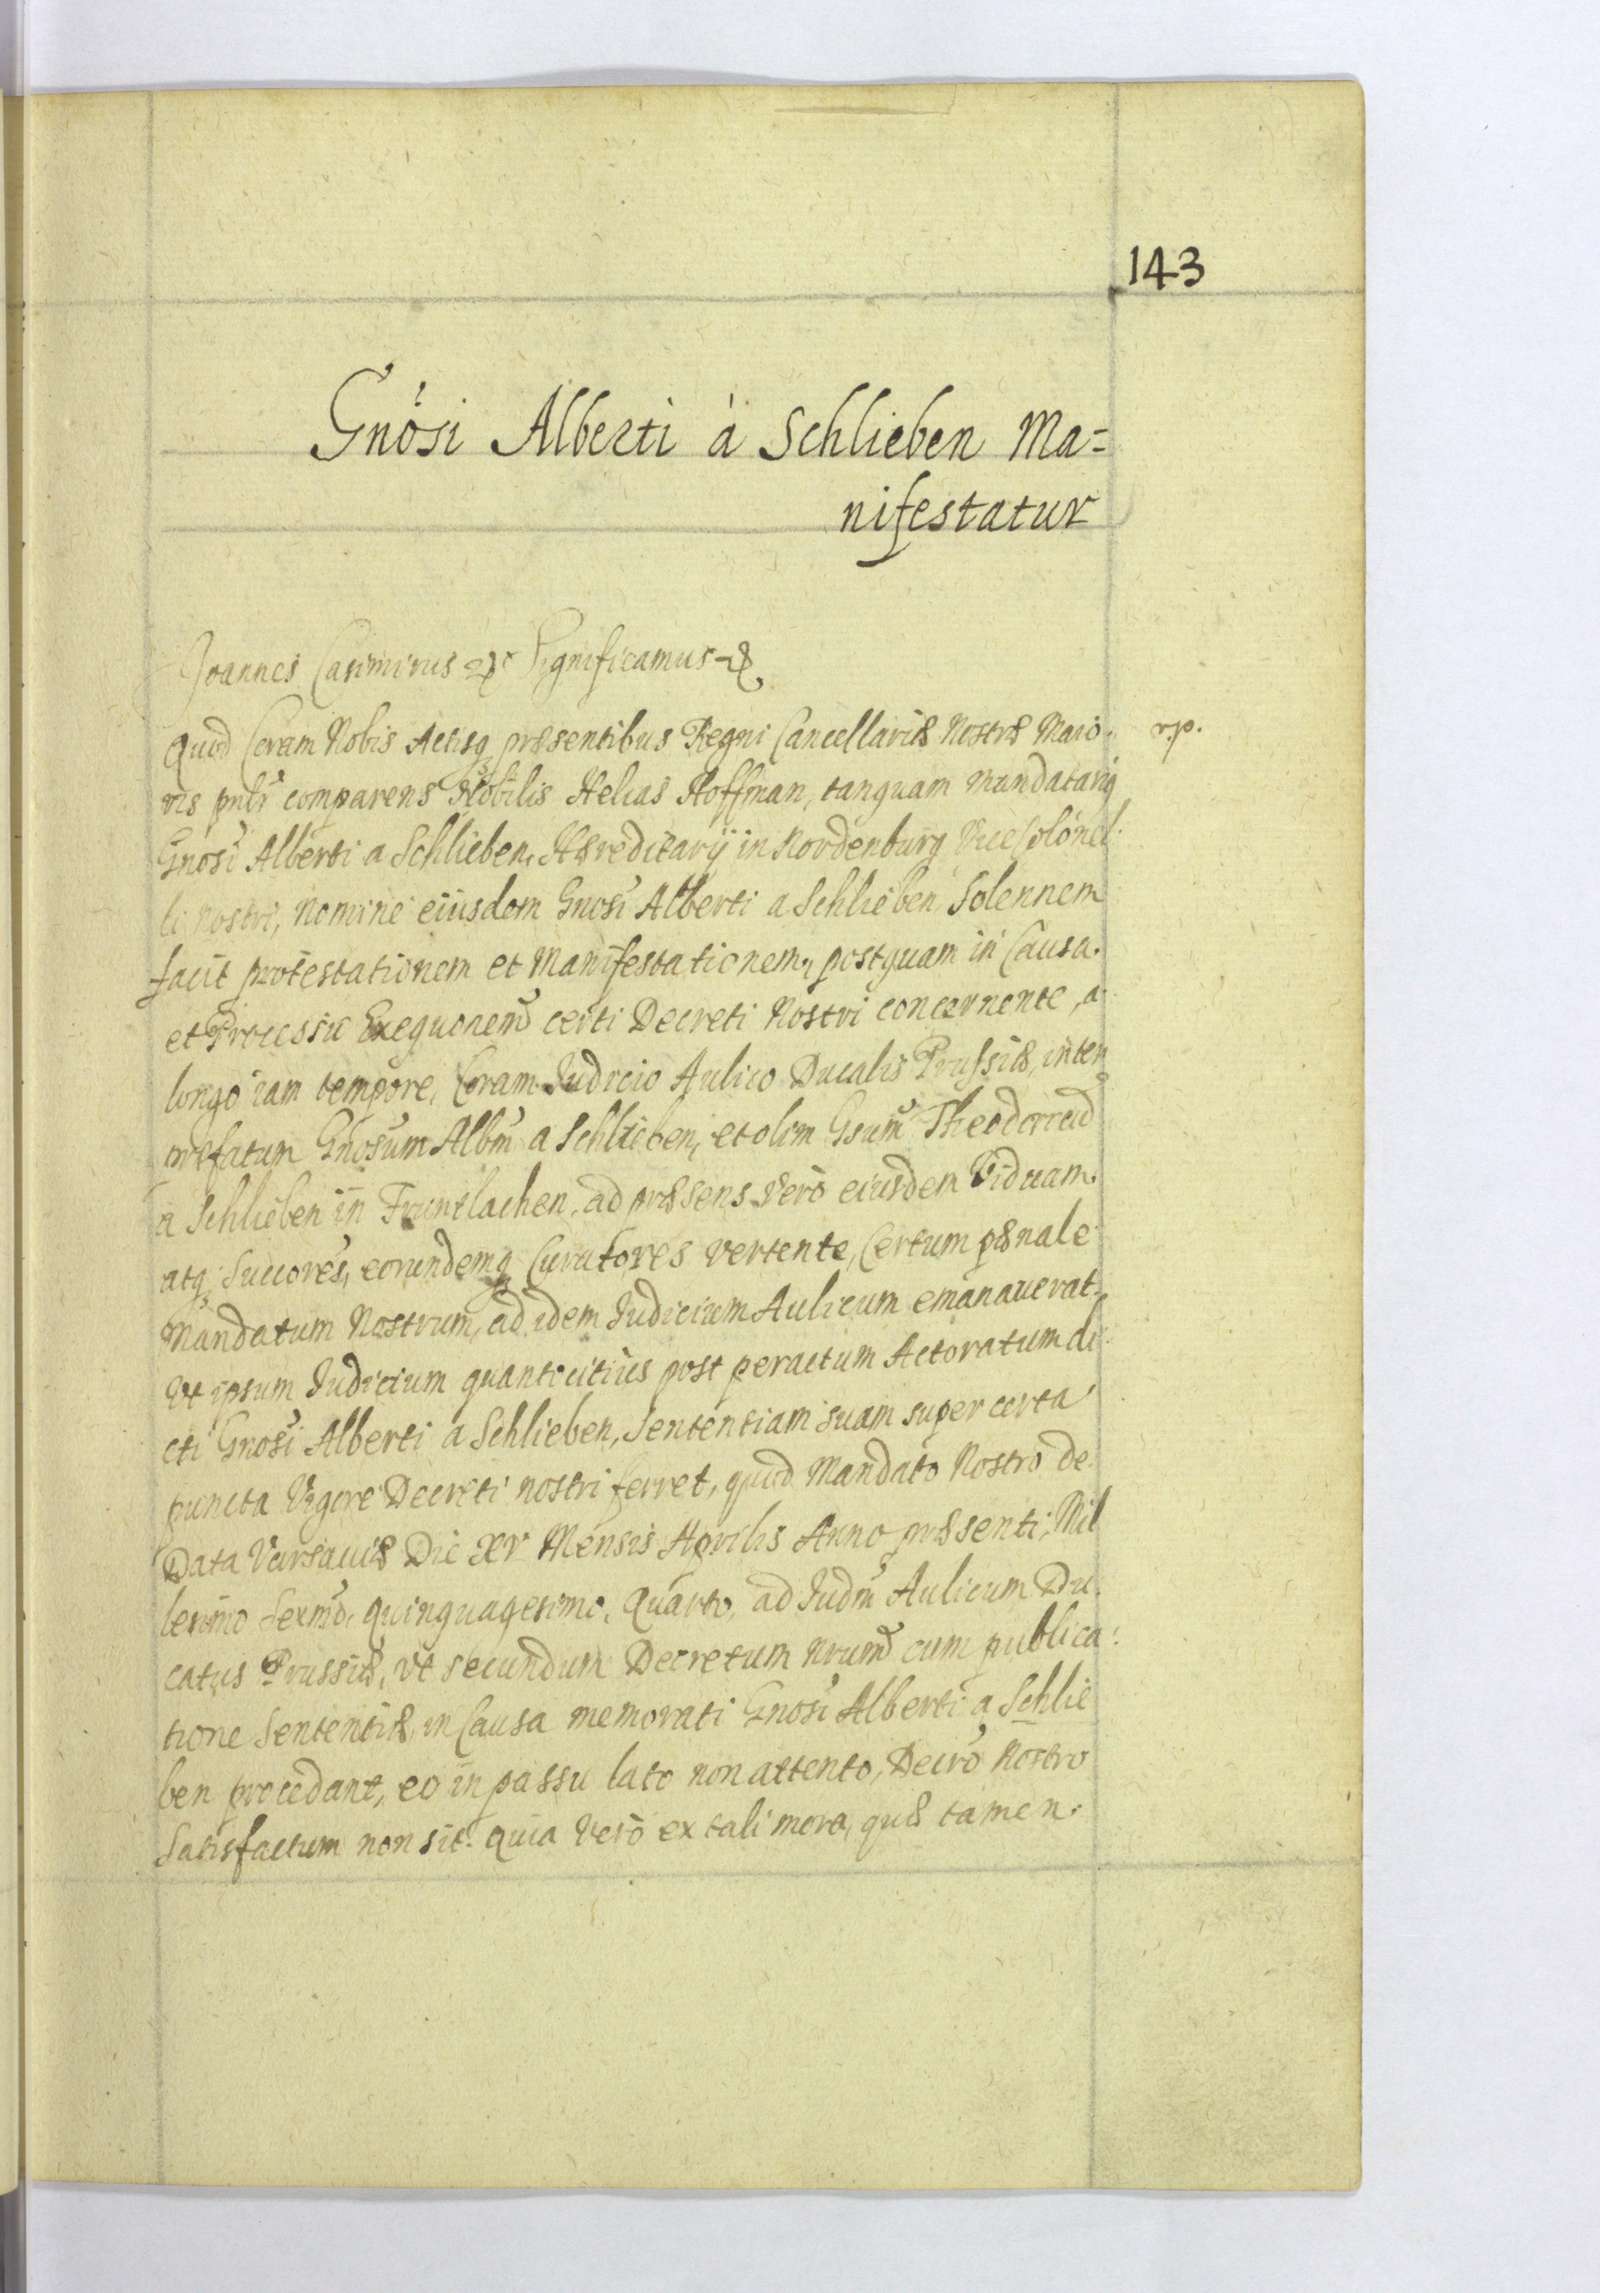 143
Gnosi Alberti à Schlieben Ma=
nifestatur
Joannes Casimirus etc Significamus etc
Quod Coram Nobis Actisq; præsentibus Regni Cancellariæ Nostræ Maio
r.p.
ris pnlr comparens Nobilis Helias Hoffman, tanquam mandatarig
Gnosi Alberti a Schlieben, Hæreditarÿ in Nordenburg Vice Colonel
li nostri, nomine eiusdem Gnosi Alberti a Schlieben Solennem
facit protestationem et Manifestationem, postquam in Causa
et Processu Exequonem certi Decreti Nostri concernente, a
longo iam tempore, Coram Judicio Aulico Ducalis Prussiæ, inter
præfatum Gnosum Albm a Schlieben, et olim Gsum Theodorum
a Schlieben in Truntlachen, ad præsens vero eiusdem Viduam
atq; Succores, eorundemq; Curatores vertente, Certum pænale
Mandatum Nostrum, ad idem Judicium Aulicum emanauerat,
Vt ipsum Judicium quantocitius post peractum Actoratum di
cti Gnosi Alberti a Schlieben, Sententiam suam super certa
puncta Vigore Decreti nostri ferret, quod Mandato Nostro de
Data Varsauiæ Die XV Mensis Aprilis Anno præsenti, Mil
lesimo Sexmo, Quinquagesimo, Quarto, ad Judm Aulicum Du
catus Prussiæ, vt secundum Decretum Nrum cum publica
tione Sententiæ, in Causa memorati Gnosi Alberti a Schlie
ben procedant, eo in passu lato non attento, Decro Nostro
Satisfactum non sit. Quia Vero ex tali mora, quæ tamen